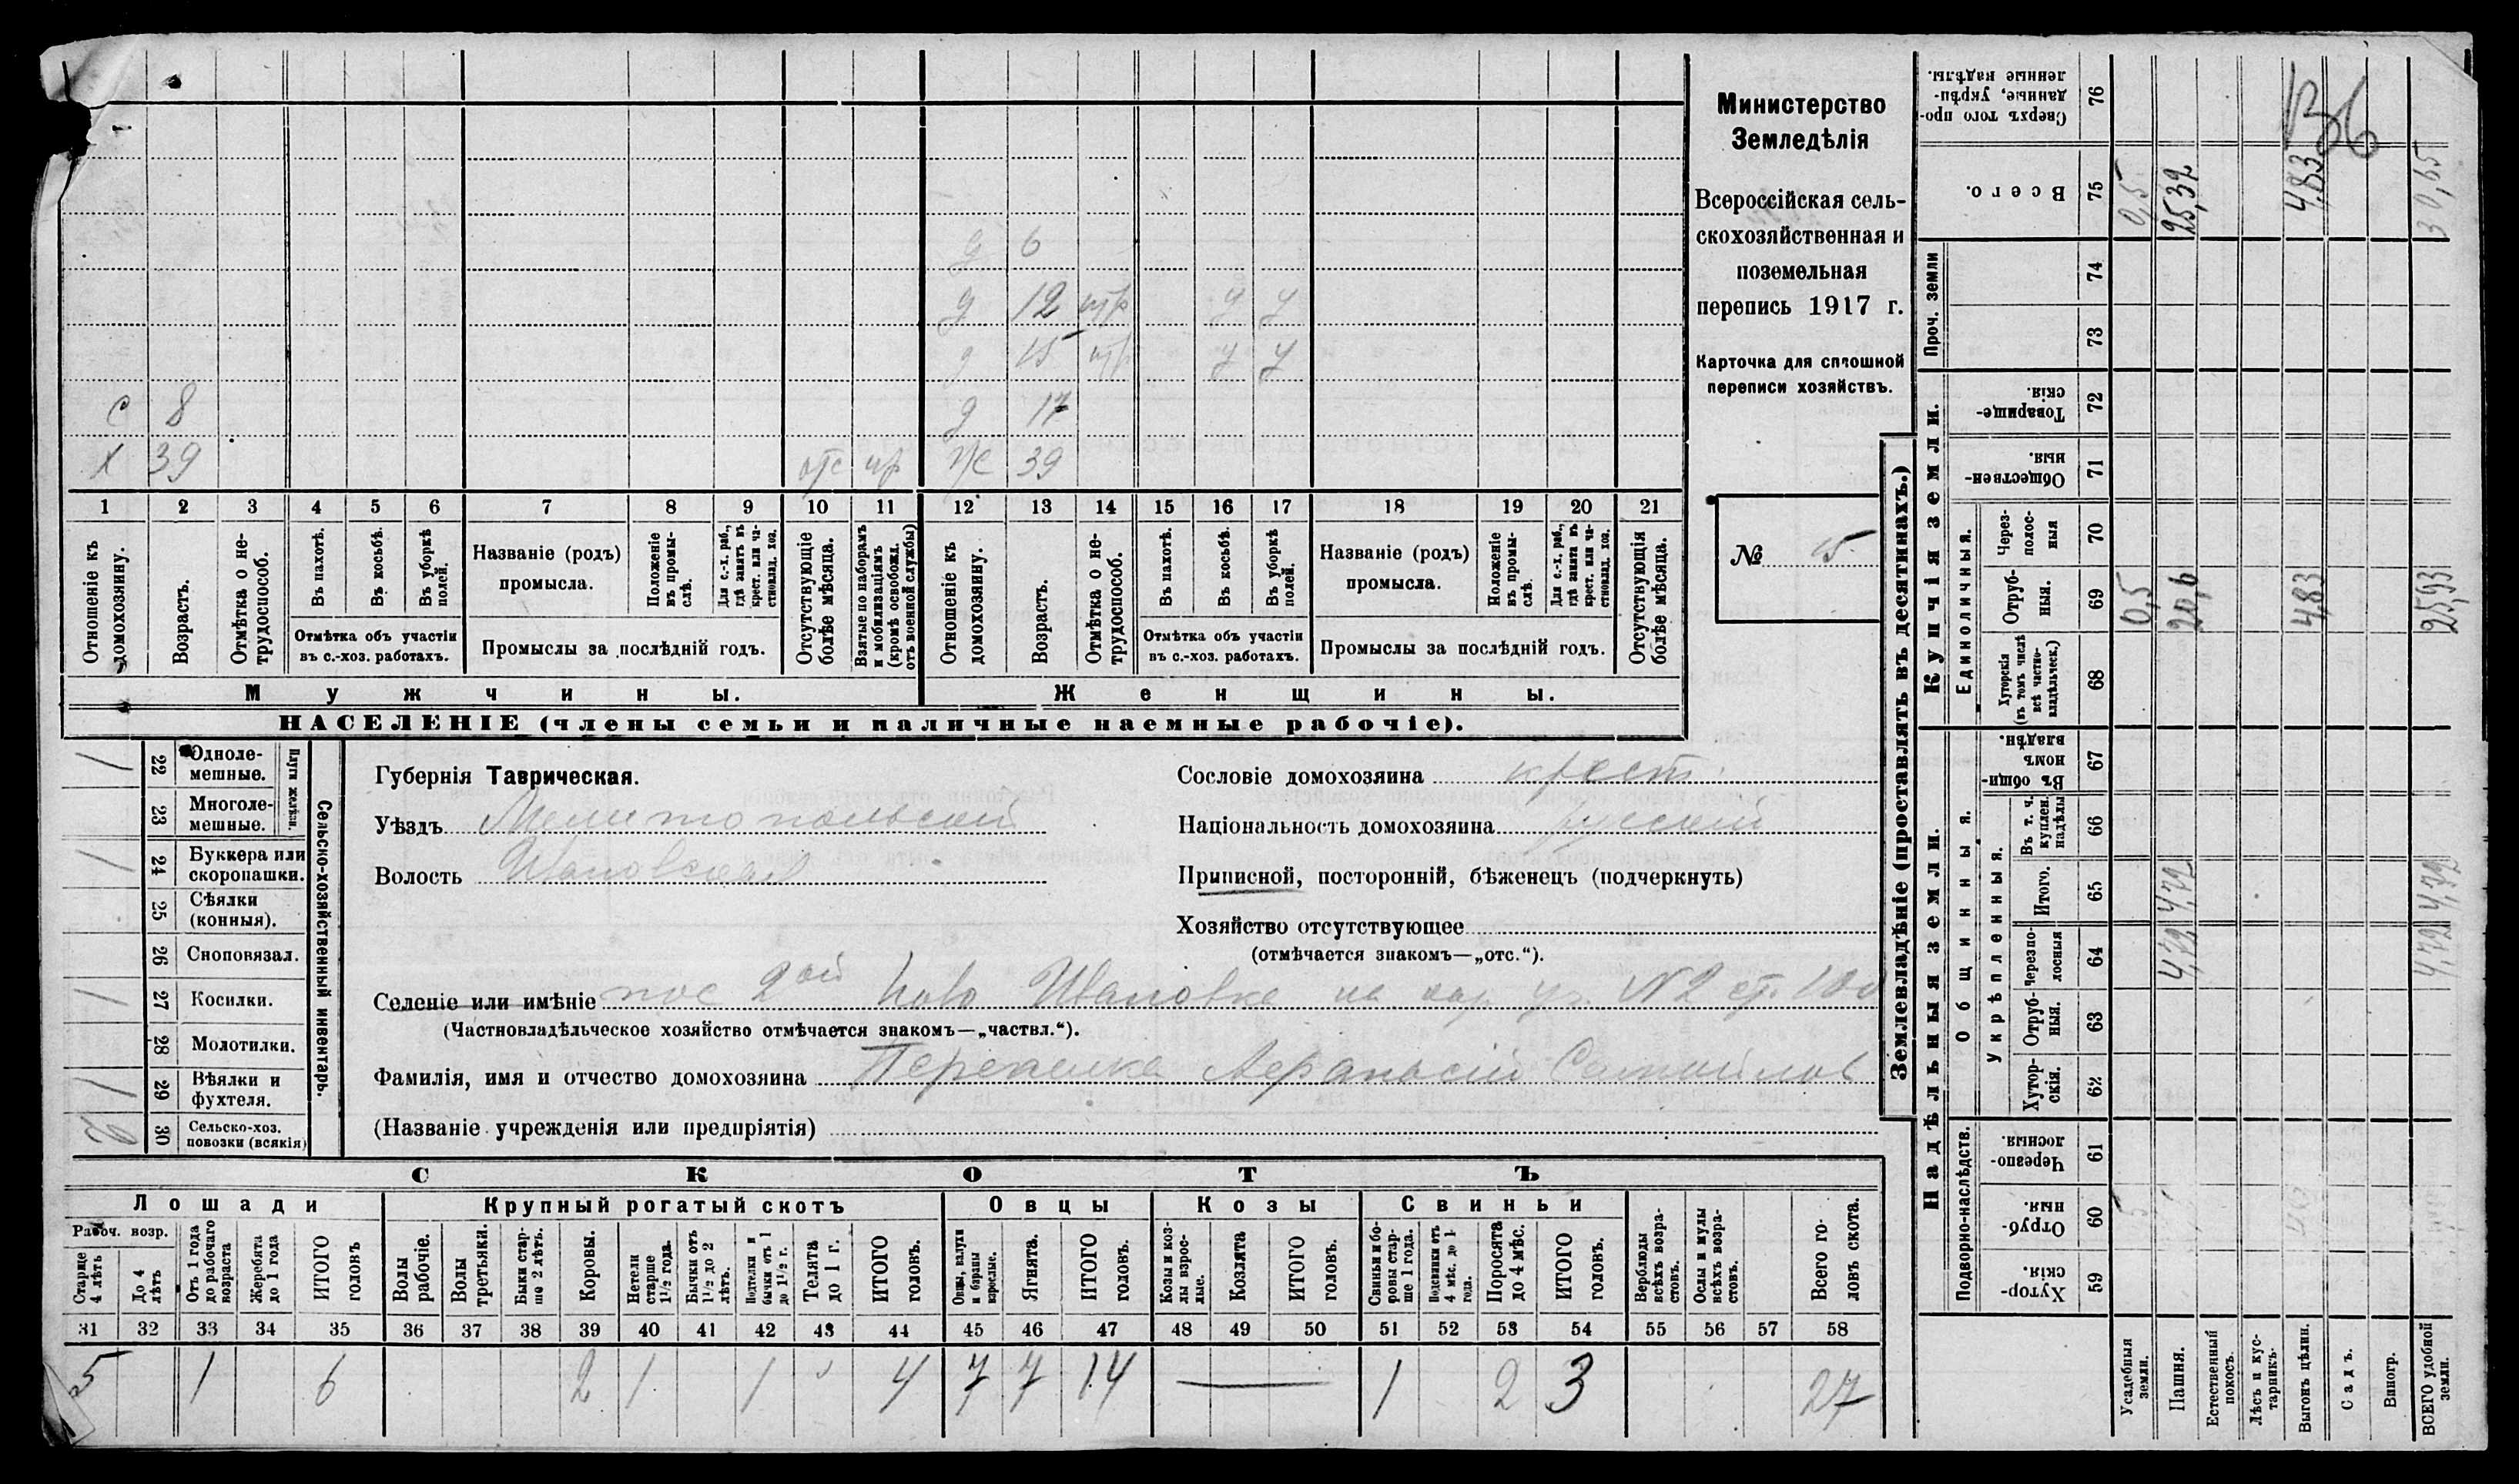 д 6
д 12 шк у у
д 15 у у
с 8 д 17
х 39 отс ж 39
1 2 3 4 5 6 7 8 9 10 11 12 13 14 15 16 17 18 19 20 21
Отношеніе къ домохозяину.
Возрастъ.
Отмѣтка о нетрудоспособ.
Въ пахотѣ.
Въ косьбѣ.
Въ уборкѣ полей.
Отмѣтка объ участіи въ с.-хоз. работахъ.
Названіе (родъ) промысла.
Положеніе въ промыслѣ.
Для с.-х. раб., гдѣ занятъ въ крест. или частновлад. хоз.
Промыслы за послѣдній годъ.
Отсутствующіе болѣе мѣсяца.
Взятые по наборамъ и мобилизаціямъ (кромѣ освобожд. отъ военной службы)
Отношеніе къ домохозяину.
Возрастъ.
Отмѣтка о нетрудоспособ.
Въ пахотѣ.
Въ косьбѣ.
Въ уборкѣ полей.
Отмѣтка объ участіи въ с.-хоз. работахъ.
Названіе (родъ) промысла.
Положеніе въ промыслѣ.
Для с.-х. раб., гдѣ занята въ крест. или частновлад. хоз.
Промыслы за послѣдній годъ.
Отсутствующія болѣе мѣсяца.
Мужчины.
Женщины.
НАСЕЛЕНІЕ (члены семьи и наличные наемные рабочіе).
Министерство
Земледѣлія
Всероссійская сель-
скохозяйственная и
поземельная
перепись 1917 г.
Карточка для сплошной
переписи хозяйствъ.
№ 15.
Сельско-хозяйственный инвентарь.
Плуги желѣзн.
22 Однолемешные. 1
23 Многолемешные.
24 Буккера или скоропашки. 1
25 Сѣялки (конныя).
26 Сноповязал.
27 Косилки. 1
28 Молотилки.
29 Вѣялки и фухтеля. 1
30 Сельско-хоз. повозки (всякія) 2
Губернія Таврическая.
Уѣздъ Мелитопольский
Волость Ивановская
Сословіе домохозяина крест.
Національность домохозяина русский
Приписной, посторонній, бѣженецъ (подчеркнуть)
Хозяйство отсутствующее
(отмѣчается знакомъ—„отс.“).
Селеніе или имѣніе пос 2ой Ново Ивановка на уч. №2 ст. 100
(Частновладѣльческое хозяйство отмѣчается знакомъ—„частвл.“).
Фамилія, имя и отчество домохозяина Перепелка Афанасій Самойлов
(Названіе учрежденія или предпріятія)
СКОТЪ
Лошади
Крупный рогатый скотъ
Овцы
Козы
Свиньи
Рабоч. возр.
Старше 4 лѣтъ
До 4 лѣтъ
Отъ 1 года до рабочаго возраста
Жеребята до 1 года
ИТОГО головъ
Волы рабочіе.
Волы третьяки.
Быки старше 2 лѣтъ.
Коровы.
Нетели старше 1½ года.
Бычки отъ 1½ до 2 лѣтъ.
Нетелки и бычки отъ 1 до 1½ г.
Телята до 1 г.
ИТОГО головъ.
Овцы, валухи и бараны взрослые.
Ягнята.
ИТОГО головъ.
Козы и козлы взрослые.
Козлята
ИТОГО головъ.
Свиньи и боровы старше 1 года.
Подсвинки отъ 4 мѣс. до 1 года.
Поросята до 4 мѣс.
ИТОГО головъ.
Верблюды всѣхъ возрастовъ.
Ослы и мулы всѣхъ возрастовъ.
Всего головъ скота.
31 32 33 34 35 36 37 38 39 40 41 42 43 44 45 46 47 48 49 50 51 52 53 54 55 56 57 58
5 1 6 2 1 1 4 7 7 14 — 1 2 3 27
Землевладѣніе (проставлять въ десятинахъ.)
Купчія земли.
Надѣльныя земли.
Сверхъ того проданные, укрѣпленные надѣлы. 76
Всего. 75 0,5 25,32 4,83 30,65
136
Проч. земли
74
73
Товарищескія 72
Общественныя. 71
Единоличныя.
Черезполосныя 70
Отрубныя. 69 0,5 20,6 4,83 25,93
Хуторскія (въ томъ числѣ всѣ частновладѣльческ.) 68
Общинныя.
Въ общинномъ владѣн. 67
Укрѣпленныя.
Въ т. ч. куплен. надѣлы 66
Итого. 65 4,72 4,72
Черезполосныя 64 4,72 4,72
Отрубныя. 63
Хуторскія. 62
Подворно-наслѣдств.
Черезполосныя. 61
Отрубныя. 60
Хуторскія. 59
Усадебныя земли.
Пашня.
Естественный покосъ.
Лѣсъ и кустарникъ.
Выгонъ цѣлин.
Садъ.
Виногр.
ВСЕГО удобной земли.